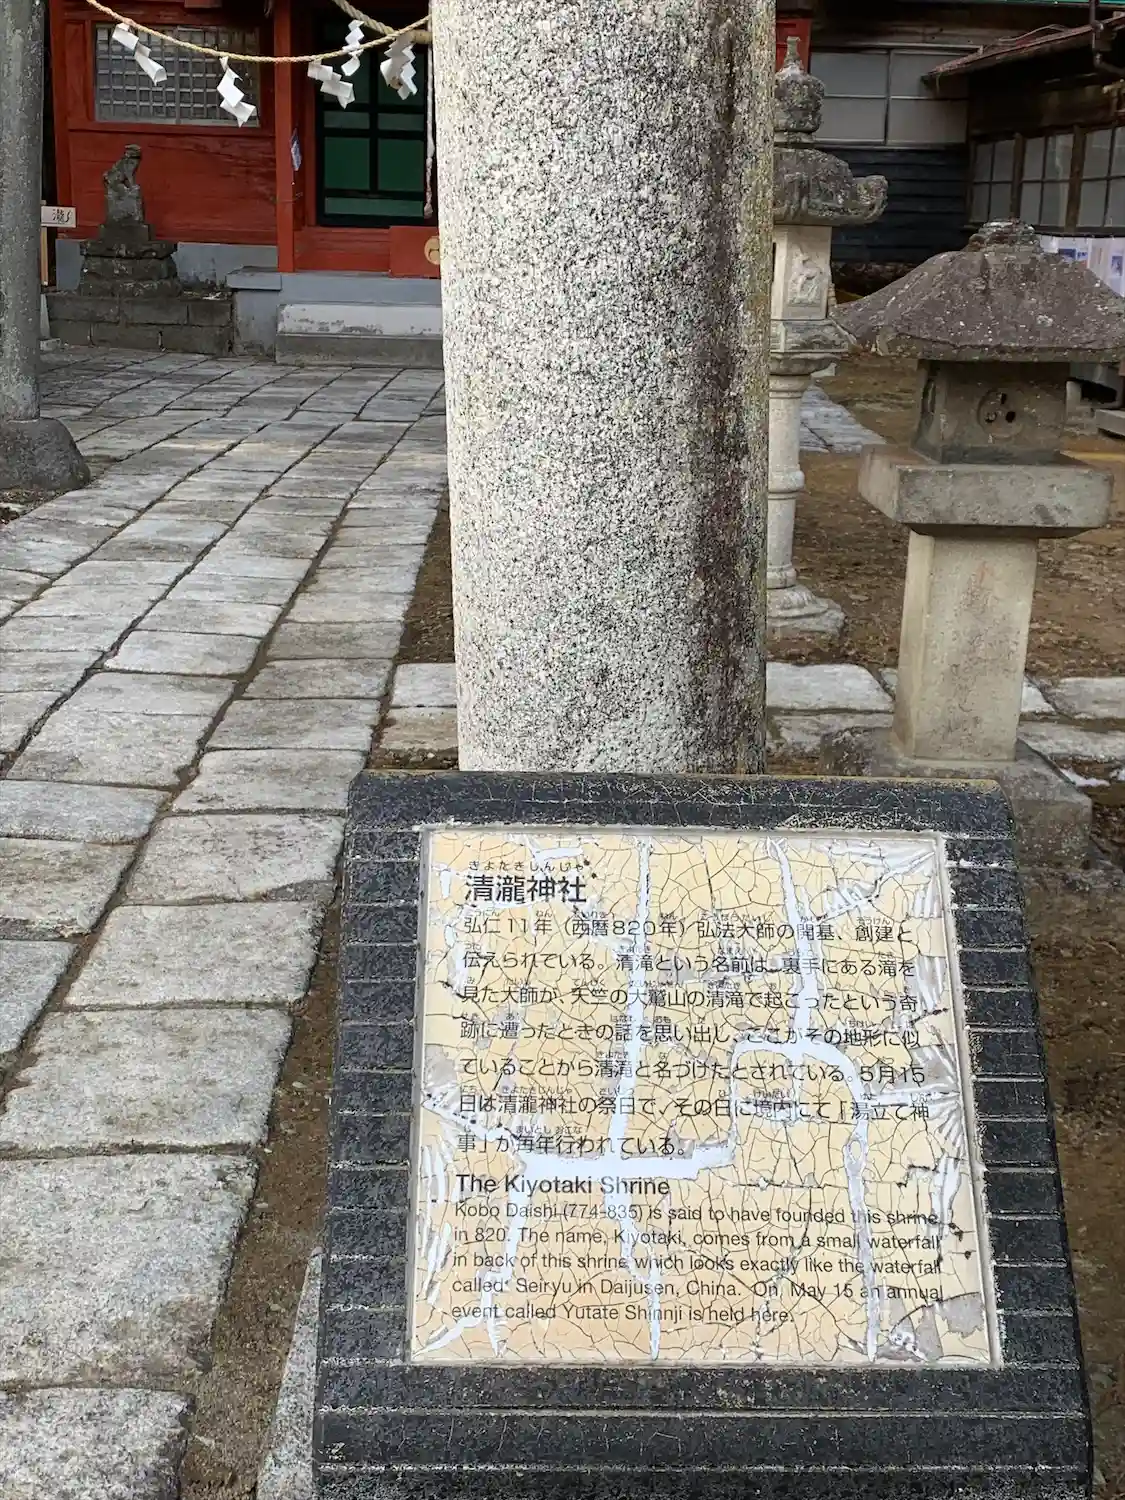 瀧尓
きよたきじんじゃ
清瀧神社
弘仁11年(西暦820年)弘法大師の開基、創建と
伝えられている。清滝という名前は、裏手にある滝を
見た大師が、天竺の大鷲山の清滝で起こったという奇
跡に遭ったときの話を思い出し、ここがその地形に似
ていることから清滝と名づけたとされている。5月15
日は清瀧神社の祭日で、その日に境内にて「湯立て神
事」が毎年行われている。
The Kiyotaki Shrine
Kobo Daishi (774-835) is said to have founded this shrine
in 820. The name, Kiyotaki, comes from a small waterfall
in back of this shrine which looks exactly like the waterfall
called Seiryu in Daijusen, China. On May 15 an annual
event called Yutate Shinnji is held here.